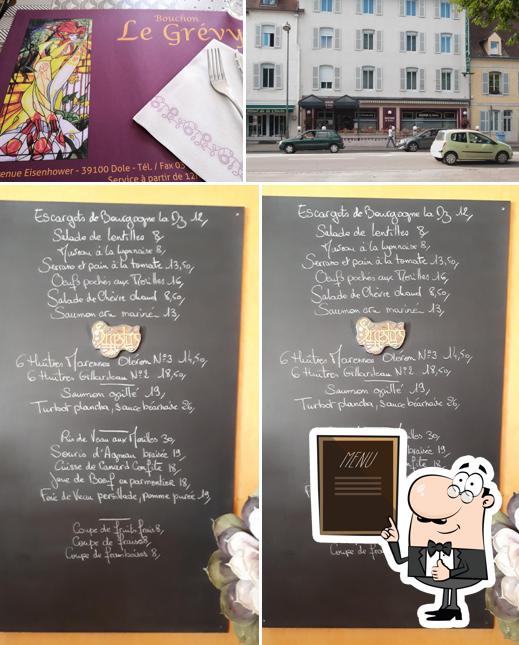 Bouchon
Le Grévy
enue Eisenhower - 39100 Dole - Tél. / Fax 03
Service à partir de 12h
Escargots de Bourgogne la Dz 12,
Salade de lentilles 8,
Museau à la lyonnaise 8,
Serrano et pain à la tomate 13,50,
Oeufs pochés aux Morilles 16,
Salade de Chèvre chaud 8,50,
Saumon mariné 13,
6 Huîtres Marennes Oléron N°3 14,50,
6 Huîtres Gillardeau N°2 18,50,
Saumon grillé 19,
Turbot plancha, sauce béarnaise 26,
Ris de Veau aux Morilles 30,
Souris d'Agneau braisée 19,
Cuisse de Canard Confite 18,
Joue de Boeuf en parmentier 18,
Foie de Veau persillade, pomme purée 19,
Coupe de fruits frais 8,
Coupe de fraises 8,
Coupe de framboises 8,
Escargots de Bourgogne la Dz 12,
Salade de lentilles 8,
Museau à la lyonnaise 8,
Serrano et pain à la tomate 13,50,
Oeufs pochés aux Morilles 16,
Salade de Chèvre chaud 8,50,
Saumon mariné 13,
6 Huîtres Marennes Oléron N°3 14,50,
6 Huîtres Gillardeau N°2 18,50,
Saumon grillé 19,
Turbot plancha, sauce béarnaise 26,
Morilles 30,
braisée 19,
fite 18,
MENU
Coupe de fra